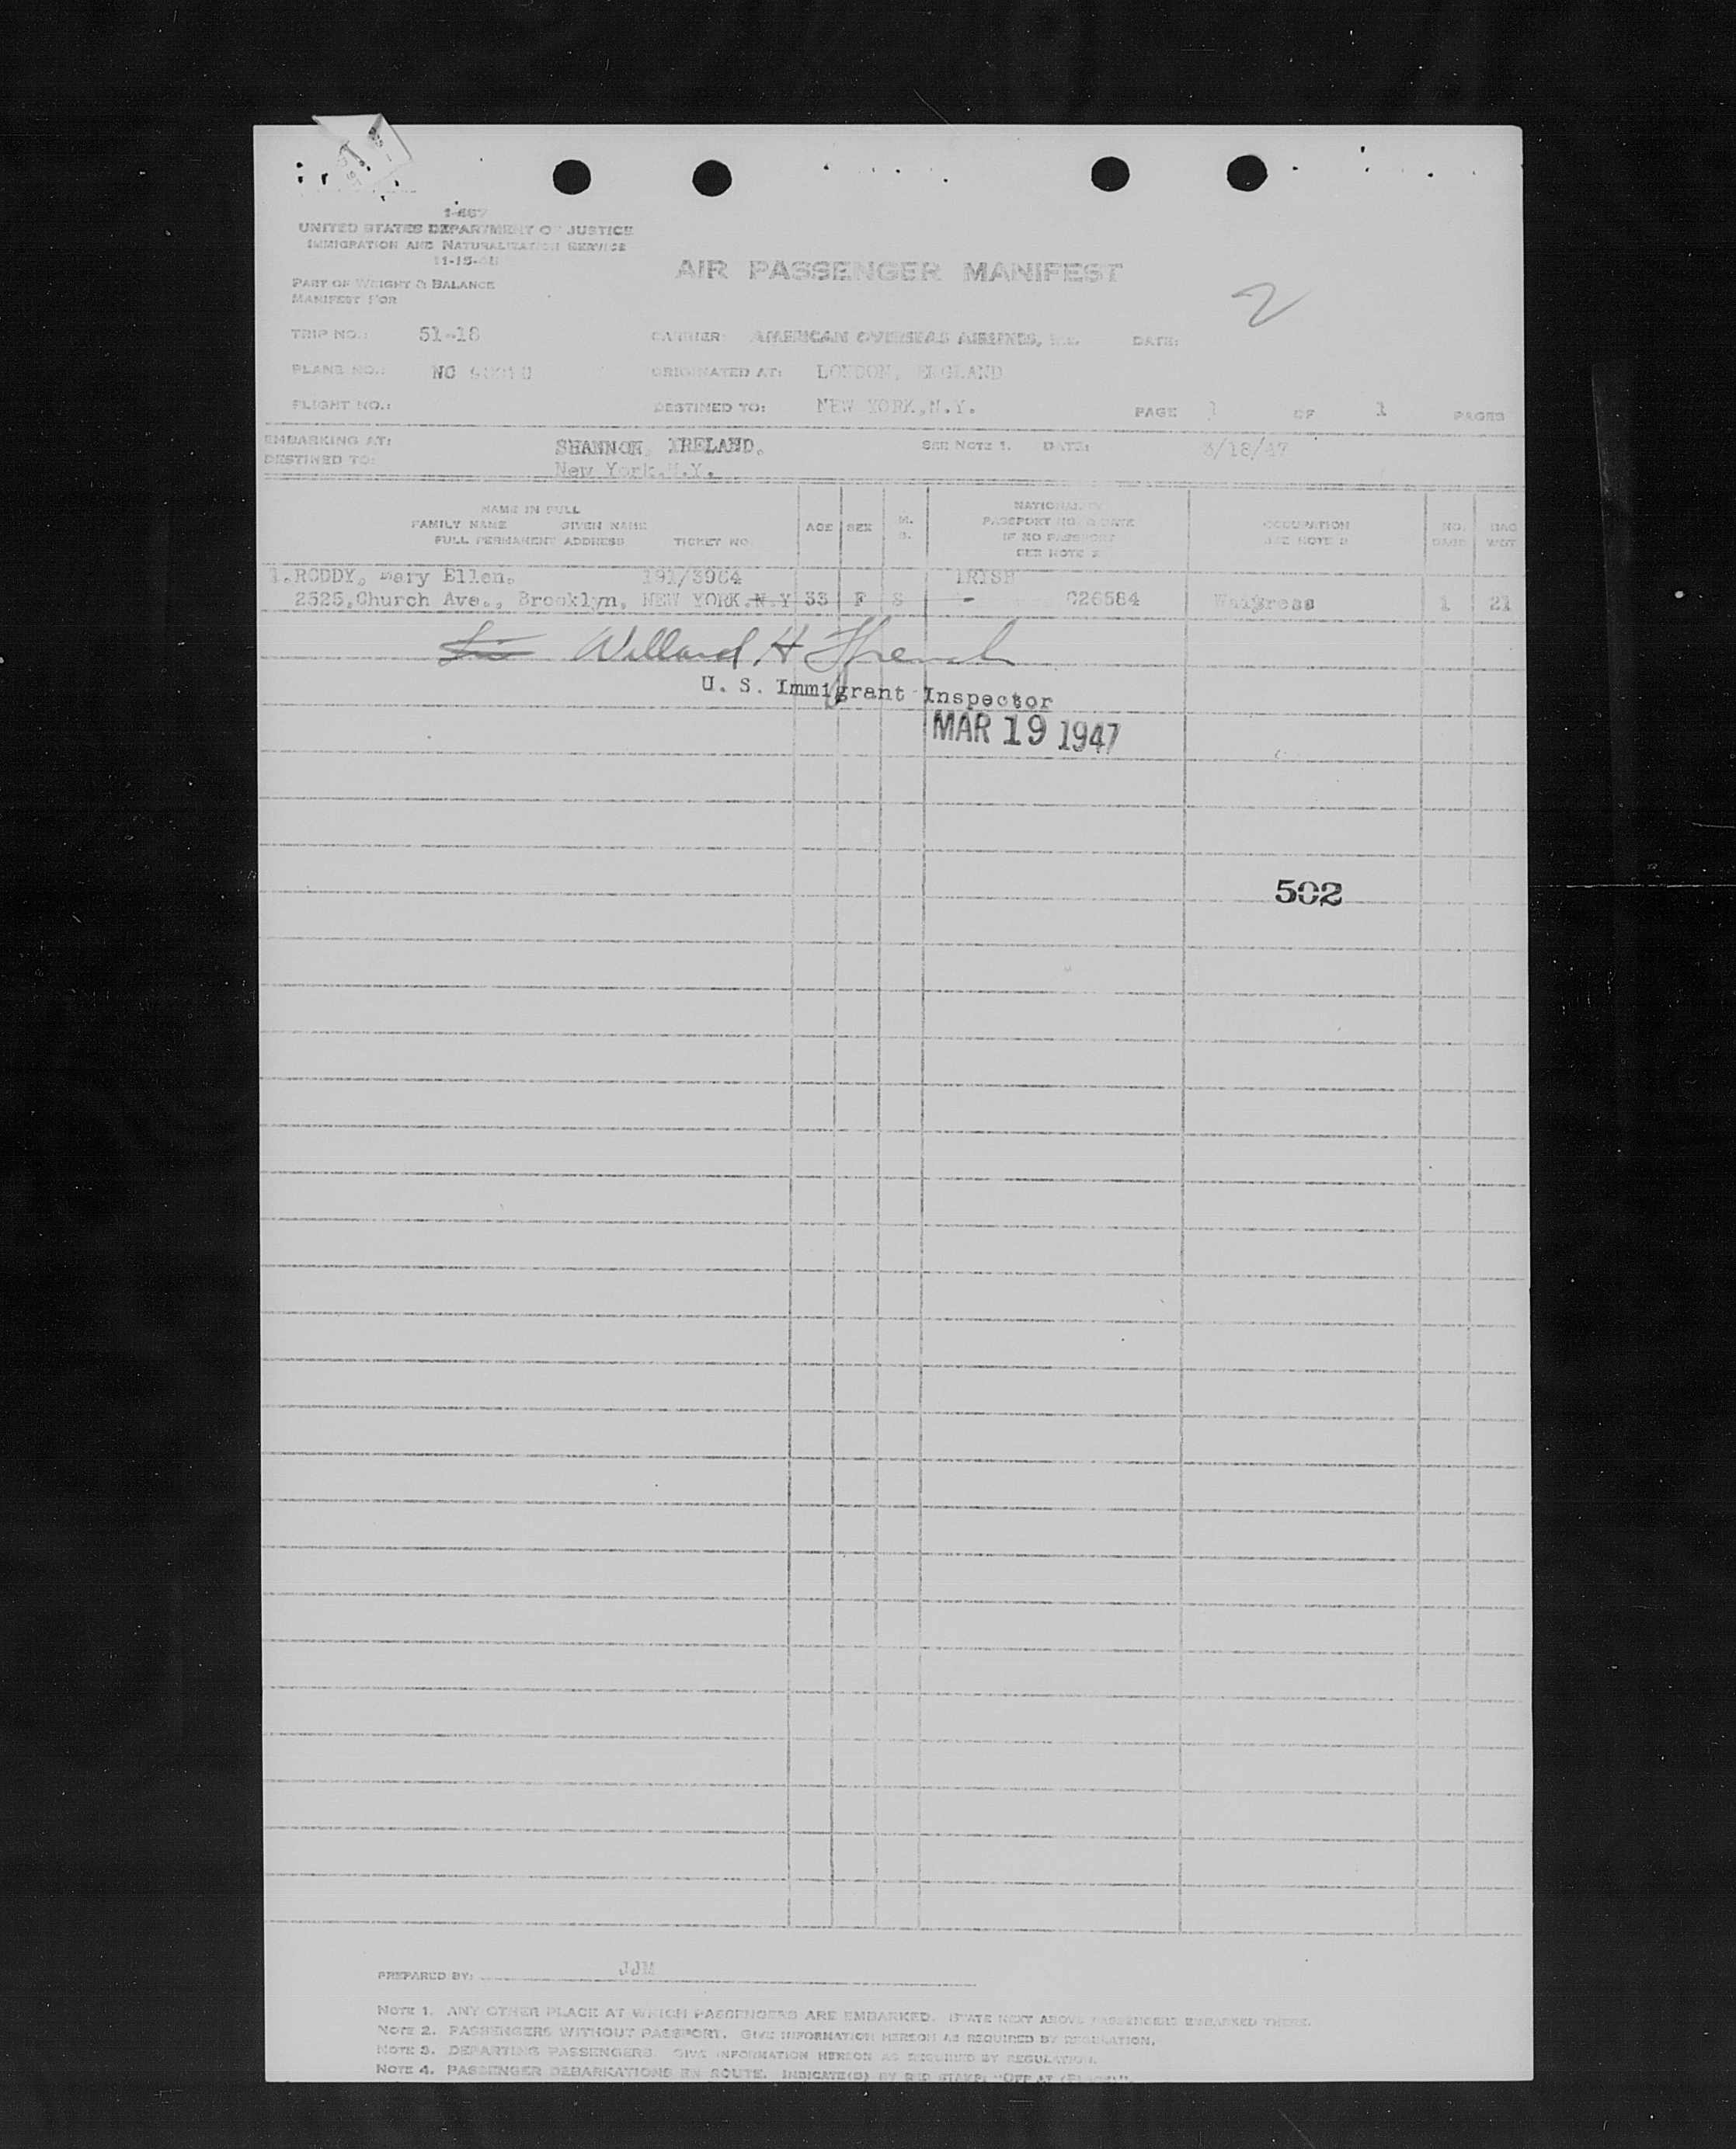 UNITED STATES DEPARTMENT OF JUSTICE
IMMIGRATION AND NATURALIZATION SERVICE
AIR PASSENGER MANIFEST
PART OF WEIGHT & BALANCE
MANIFEST FOR
2
TRIP NO.: 51-18 CARRIER: AMERICAN OVERSEAS AIRLINES, INC. DATE:
PLANE NO.: NC ORIGINATED AT: LONDON, ENGLAND
FLIGHT NO.: DESTINED TO: NEW YORK,N.Y. PAGE 1 OF 1 PAGES
EMBARKING AT: SHANNON, IRELAND. SEE NOTE 1. DATE: 3/18/47
DESTINED TO: New York.N.Y.
NAME IN FULL
FAMILY NAME GIVEN NAME
FULL PERMANENT ADDRESS TICKET NO.
AGE SEX M. S.
NATIONALITY
PASSPORT NO. & DATE
IF NO PASSPORT
SEE NOTE 2
OCCUPATION
SEE NOTE 3
NO. BAGS
BAG WGT
1.RODDY, Mary Ellen. 191/3964 IRISH
2525,Church Ave., Brooklyn, NEW YORK.N.Y 33 F S - C26584 Waitress 1 21
Willard H French
U. S. Immigrant Inspector
MAR 19 1947
502
PREPARED BY: JJM
NOTE 1. ANY OTHER PLACE AT WHICH PASSENGERS ARE EMBARKED. STATE NEXT ABOVE PASSENGERS EMBARKED THERE.
NOTE 2. PASSENGERS WITHOUT PASSPORT. GIVE INFORMATION HEREON AS REQUIRED BY REGULATION.
NOTE 3. DEPARTING PASSENGERS. GIVE INFORMATION HEREON AS REQUIRED BY REGULATION.
NOTE 4. PASSENGER DEBARKATIONS EN ROUTE. INDICATE(D) BY RED STAMP: "OFF AT